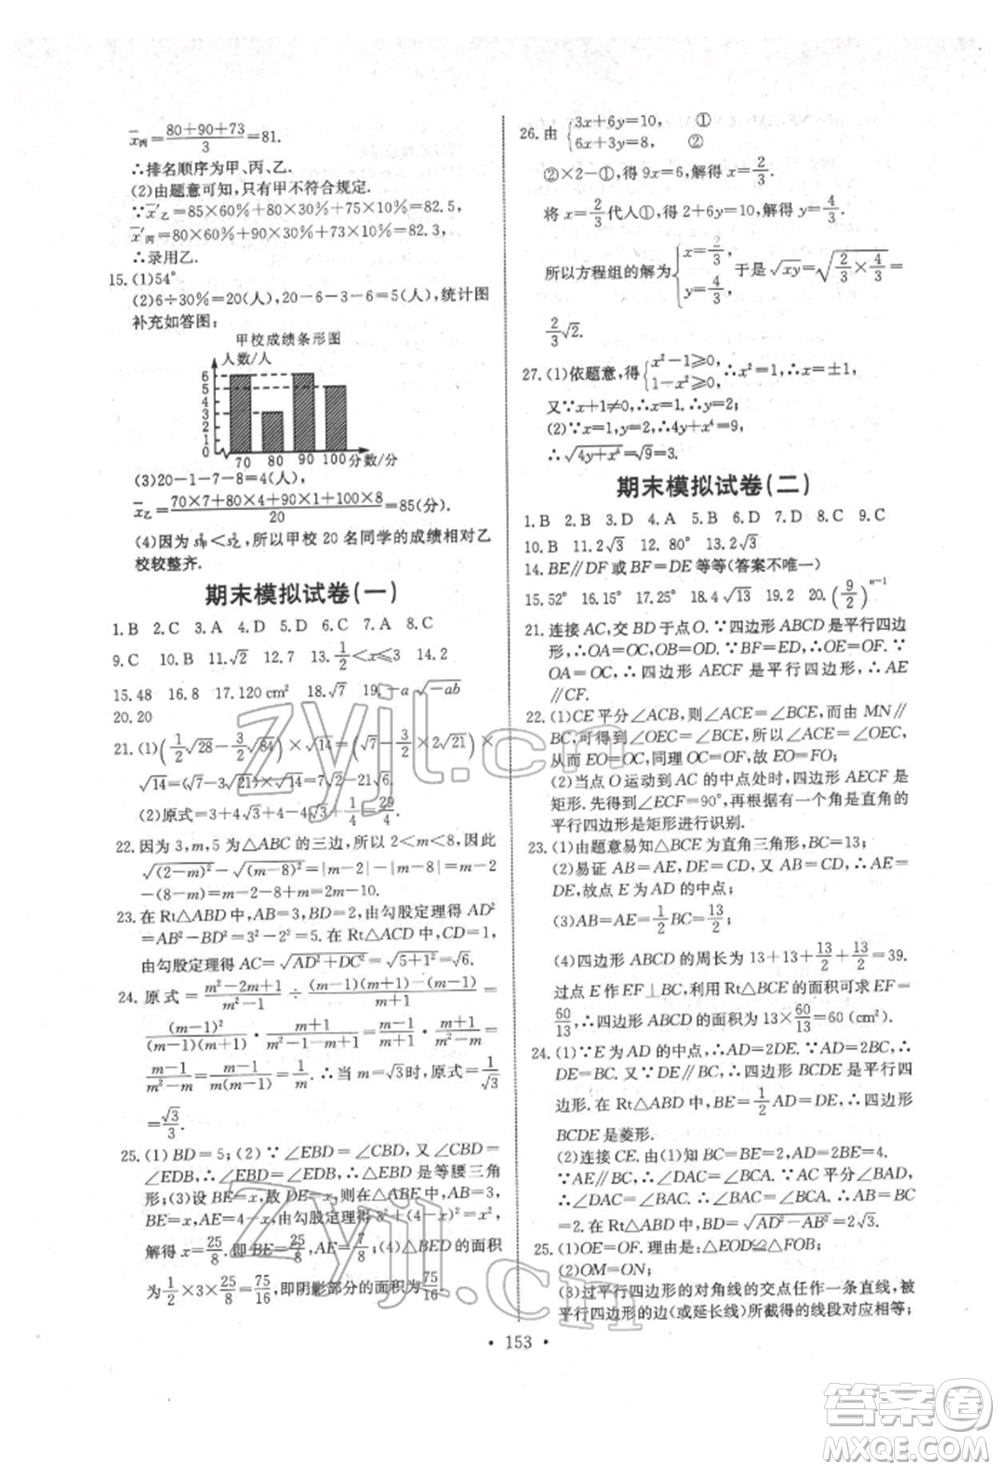 x̄丙=(80+90+73)/3=81.
∴排名顺序为甲、丙、乙.
(2)由题意可知,只有甲不符合规定.
∵x̄′乙=85×60%+80×30%+75×10%=82.5,
x̄′丙=80×60%+90×30%+73×10%=82.3,
∴录用乙.
15.(1)54°
(2)6÷30%=20(人),20-6-3-6=5(人),统计图
补充如答图:
甲校成绩条形图
人数/人
6
5
4
3
2
1
70 80 90 100 分数/分
(3)20-1-7-8=4(人),
x̄乙=(70×7+80×4+90×1+100×8)/20=85(分).
(4)因为 s²甲<s²乙,所以甲校 20 名同学的成绩相对乙
校较整齐.
期末模拟试卷(一)
1.B 2.C 3.A 4.B 5.C 6.B 7.D 8.C
9.C 10.B 11.√2 12.7 13.1/2<x≤3 14.2
15.48 16.8 17.120 cm² 18.√7 19.-a√-ab
20.20
21.(1)(1/2√28-3/2√84)×√14=(√7-3/2×2√21)×
√14=(√7-3√21)×√14=7√2-21√6.
(2)原式=3+4√3+4-4√3+1/4=29/4
22.因为 3,m,5 为△ABC 的三边,所以 2<m<8,所以
√(2-m)²-√(m-8)²=|m-2|-|m-8|=m-2-
(8-m)=m-2-8+m=2m-10.
23.在 Rt△ABD 中,AB=3,BD=2,由勾股定理得 AD²
=AB²-BD²=3²-2²=5.在 Rt△ACD 中,CD=1,
由勾股定理得 AC=√(AD²+DC²)=√(5+1²)=√6.
24.原式=(m²-2m+1)/(m²-1)÷((m-1)-(m-1)(m+1))/(m+1)=
(m-1)²/((m-1)(m+1))·(m+1)/(m-1-m²+1)=(m-1)/(m+1)·(m+1)/(m-m²)=
(m-1)/(m²-m)=(m-1)/(m(m-1))=1/m.∴当 m=√3时,原式=1/√3
=√3/3.
25.(1) BD=5; (2) ∵∠EBD=∠CBD,又∠CBD=
∠EDB,∴∠EBD=∠EDB,∴△BED 是等腰三角
形;(3)设 BE=x,故 DE=x,则在△ABE 中,AB=3,
AE=4-x,由勾股定理得 3²+(4-x)²=x²,
解得 x=25/8.即 BE=25/8,AE=7/8;(4)△BED 的面积
为1/2×3×25/8=75/16,即阴影部分的面积为75/16.
26.由{3x+6y=10, ①
6x+3y=8, ②
②×2-①,得 9x=6,解得 x=2/3.
将 x=2/3代人①,得 2+6y=10,解得 y=4/3.
所以方程组的解为{x=2/3
y=4/3,于是√xy=√(2/3×4/3)=
2/3√2.
27.(1)依题意,得{x²-1≥0,
1-x²≥0,∴x²=1,∴x=±1,
又∵x+1≠0,∴x=1,∴y=2;
(2)∵x=1,y=2,∴4y+x⁴=9,
∴√(4y+x⁴)=√9=3.
期末模拟试卷(二)
1.B 2.B 3.D 4.A 5.B 6.D 7.D 8.C 9.C
10.B 11.2√3 12.80° 13.2√3
14.BE∥DF或BF=DE等等(答案不唯一)
15.52° 16.15° 17.25° 18.4√13 19.2 20.(9/2)ⁿ⁻¹
21.连接 AC,交 BD 于点O.∵四边形 ABCD 是平行四边
形,∴OA=OC,OB=OD.∵BF=ED,∴OE=OF.∵
OA=OC,∴四边形 AECF 是平行四边形,∴AE
∥CF.
22.(1)CE 平分∠ACB,则∠ACE=∠BCE,而由 MN∥
BC,可得到∠OEC=∠BCE,故∠ACE=∠OEC,于
是 EO=CO,同理可得,FO=CO,故 EO=FO;
(2)当点 O 运动到 AC 的中点处时,四边形 AECF 是
矩形.先得到∠ECF=90°,再根据有一个角是直角的
平行四边形是矩形进行识别.
23.(1)由题意易知△BCE为直角三角形,BC=13;
(2)易证 AB=AE,CD=DE,又∵AB=CD,∴AE=
DE,故点 E 为 AD 的中点;
(3)AB=AE=1/2BC=13/2;
(4)四边形 ABCD 的周长=13+13+13/2+13/2=39.
过点 E 作EF⊥BC,利用 Rt△BEC 的面积可求 EF=
60/13,∴四边形 ABCD 的面积为 13×60/13=60 (cm²).
24.(1)∵E 为 AD 的中点,∴AD=2DE.∵AD=2BC,∴
BC=DE.∵ED∥BC,∴四边形 BCDE 为平行四边
形.在 Rt△ABD 中,BE=1/2AD=DE,∴四边形
BCDE 是菱形.
(2)连接 CE.同(1)可知,四边形 ABCE 是平行四边形.
∵AD∥BC,∴∠DAC=∠BCA.∵AC 平分∠BAD,
∴∠DAC=∠BAC,∴∠BAC=∠BCA,∴AB=BC
=2.在 Rt△ABD 中,BD=√(AD²-AB²)=2√3.
25.(1)OE=OF.理由是:△EOD≌△FOB.
(2)OM=ON;
(3)过平行四边形的对角线的交点任作一条直线,被
平行四边形的边(或延长线)所截得的线段对应相等;
• 153 •
zyjl.cn
zyjl.cn
答案圈
MXQE.COM